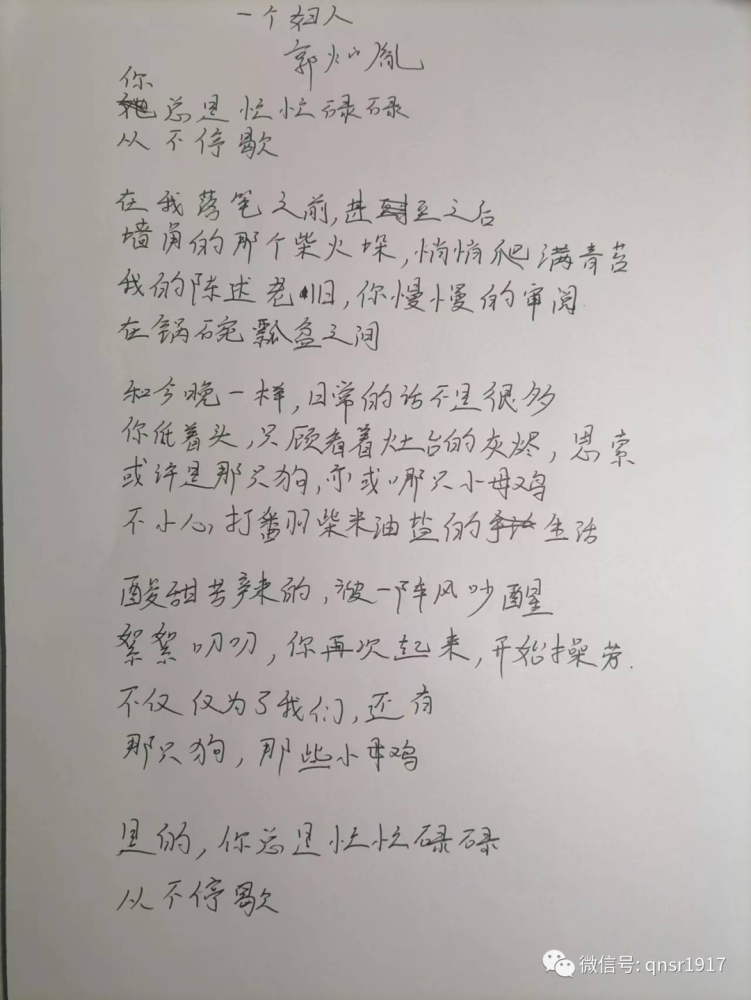 一个妇人
郭灿胤
你
总是忙忙碌碌
从不停歇
在我落笔之前,甚至之后
墙角的那个柴火垛,悄悄爬满青苔
我的陈述老旧,你慢慢的审阅.
在锅碗瓢盆之间
和今晚一样,日常的话不是很多
你低着头,只顾看着灶台的灰烬,思索
或许是那只狗,亦或哪只小母鸡
不小心,打翻柴米油盐的生活
酸甜苦辣的,被一阵风吵醒
絮絮叨叨,你再次起来,开始操劳.
不仅仅为了我们,还有
那只狗,那些小母鸡
是的,你总是忙忙碌碌
从不停歇
微信号: qnsr1917